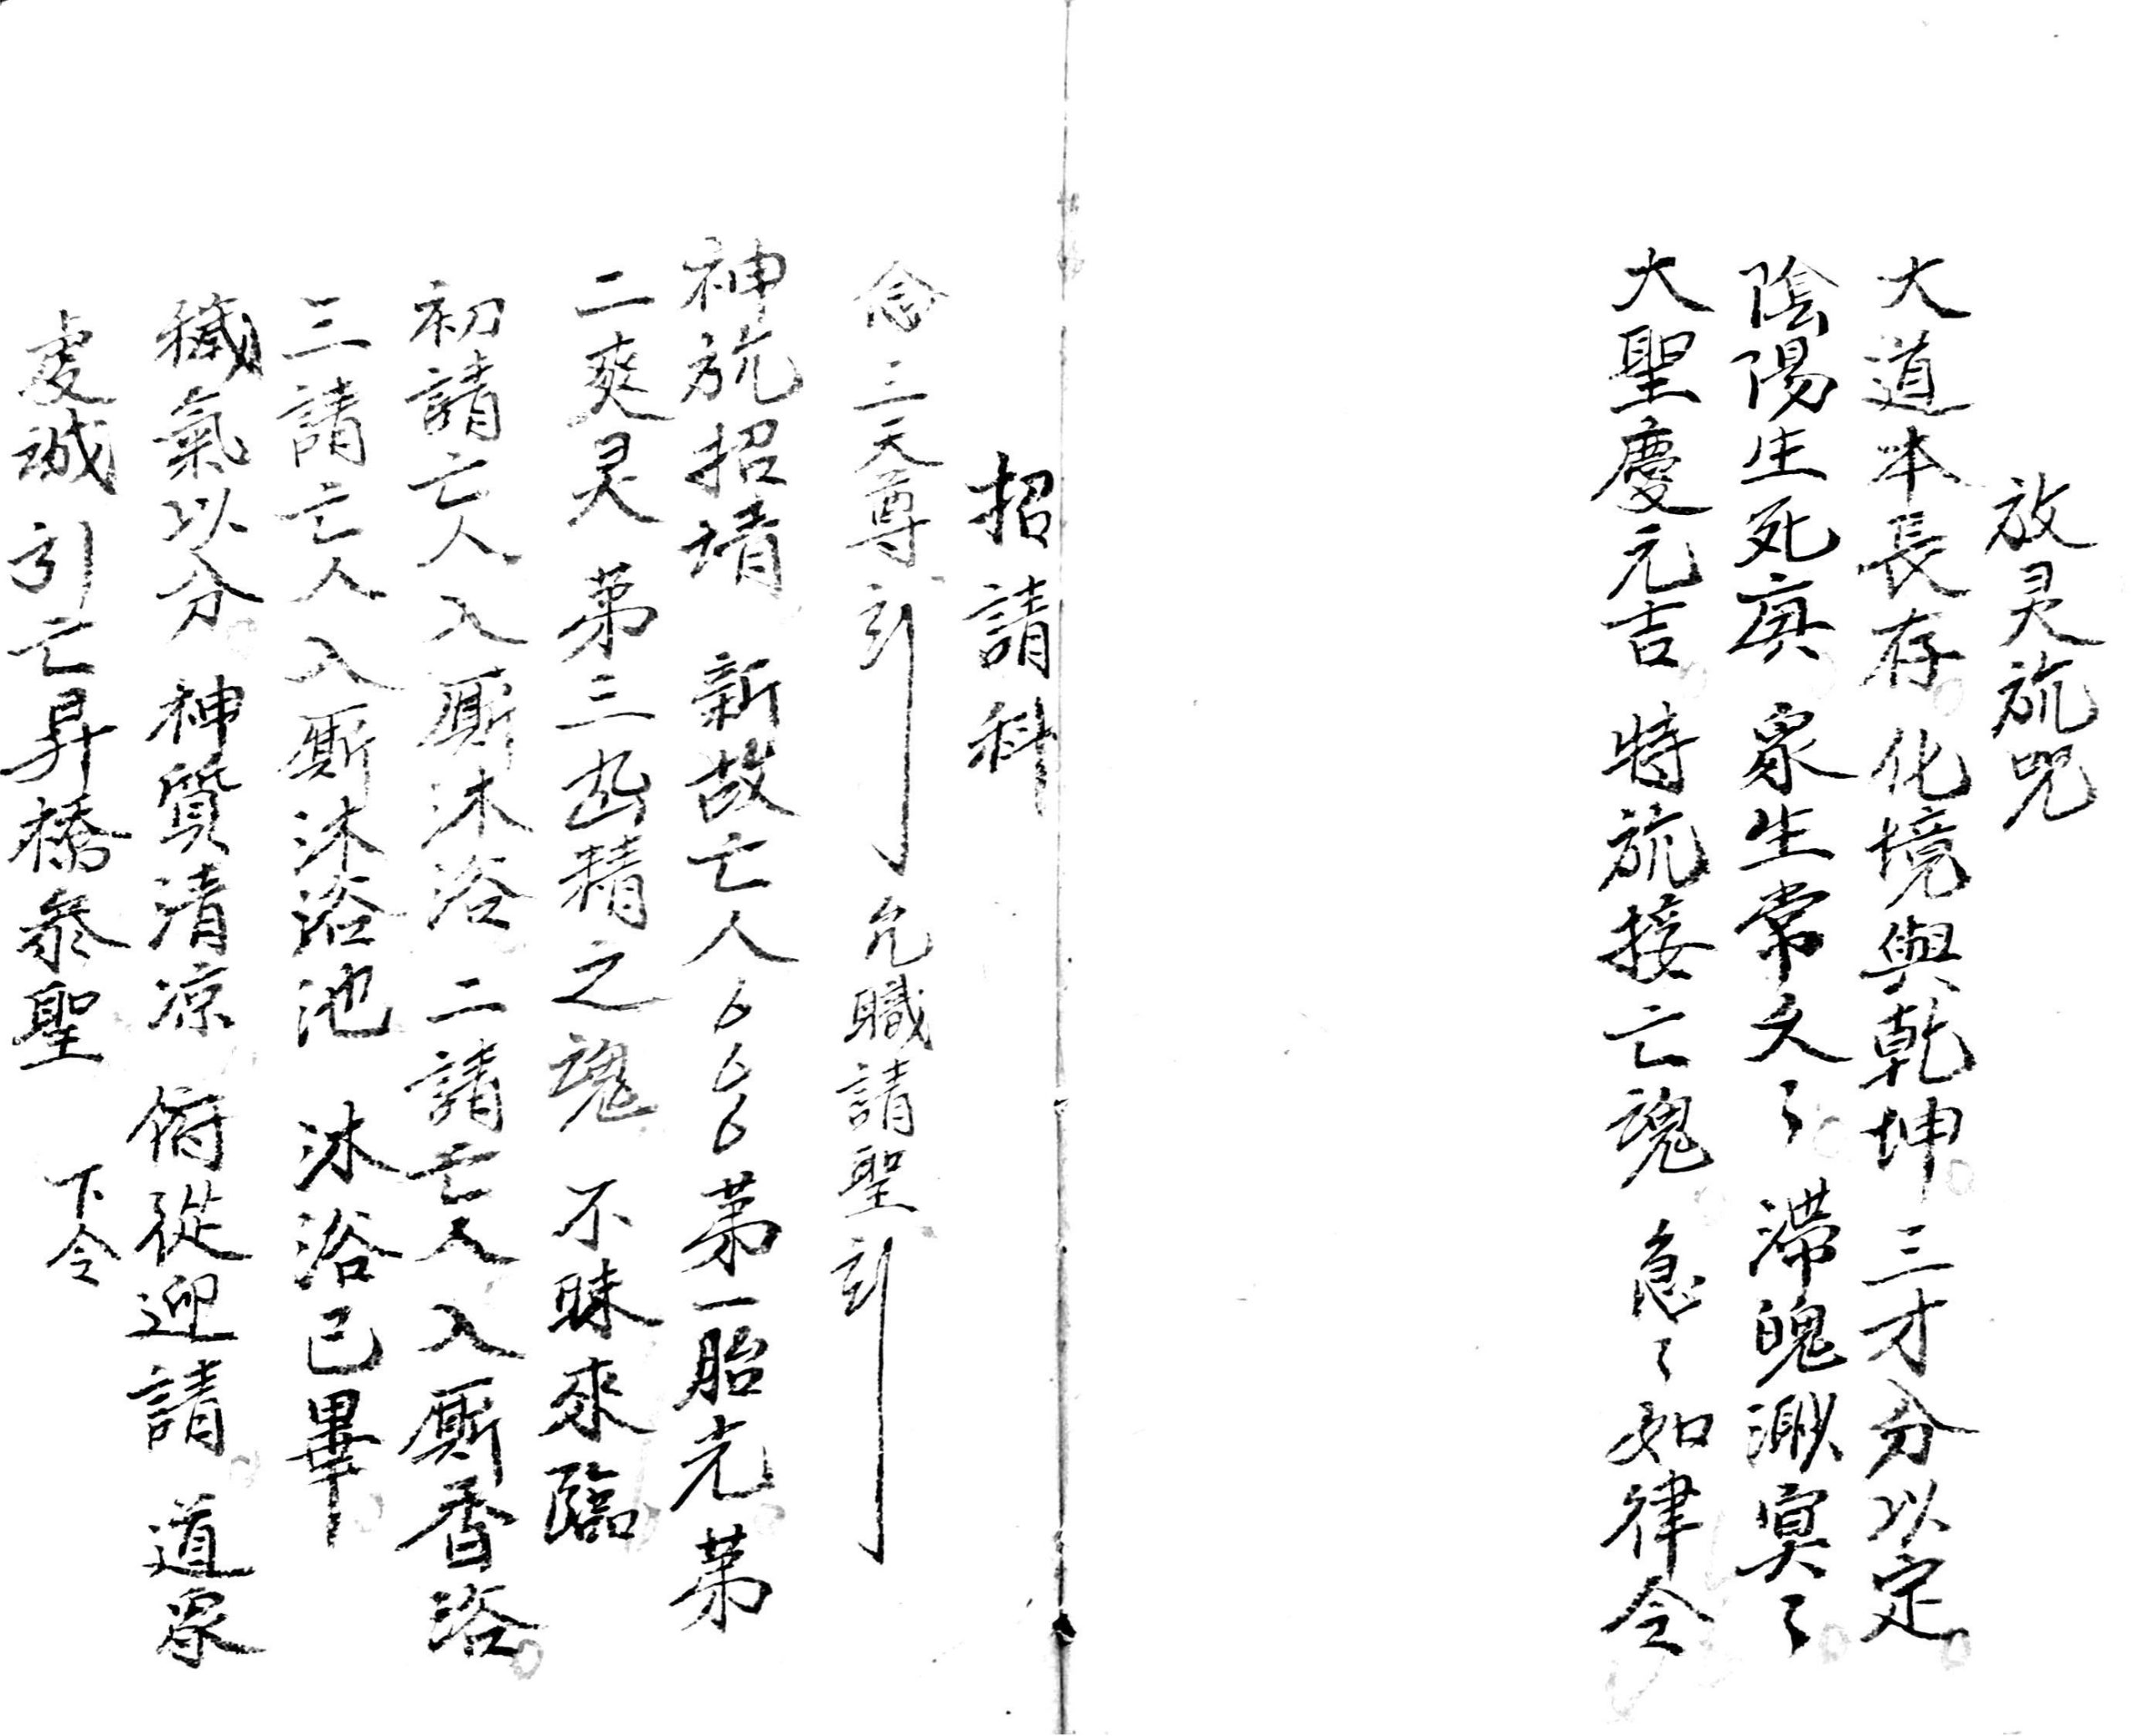 放灵旐咒
大道本長存 化境與乾坤 三才分以定
陰陽生死真 衆生常久々 滞魄渺冥々
大聖慶元吉 特旐接亡魂 急々如律令
招請科
念三天尊引 允職請聖引
神旐招請 新故亡人 第一胎光第
二爽灵 第三幽精之魂 不昧來臨
初請亡人 入厮沐浴 二請亡人 入厮香浴
三請亡人 入厮沐浴池 沐浴已畢
穢氣以分 神質清凉 俯從迎請 道衆
虔诚 引亡昇橋叅聖 下令